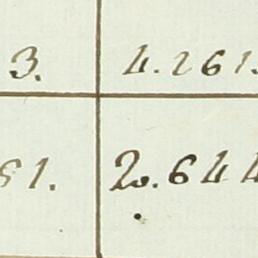 3. 4.261.
81. 20.644